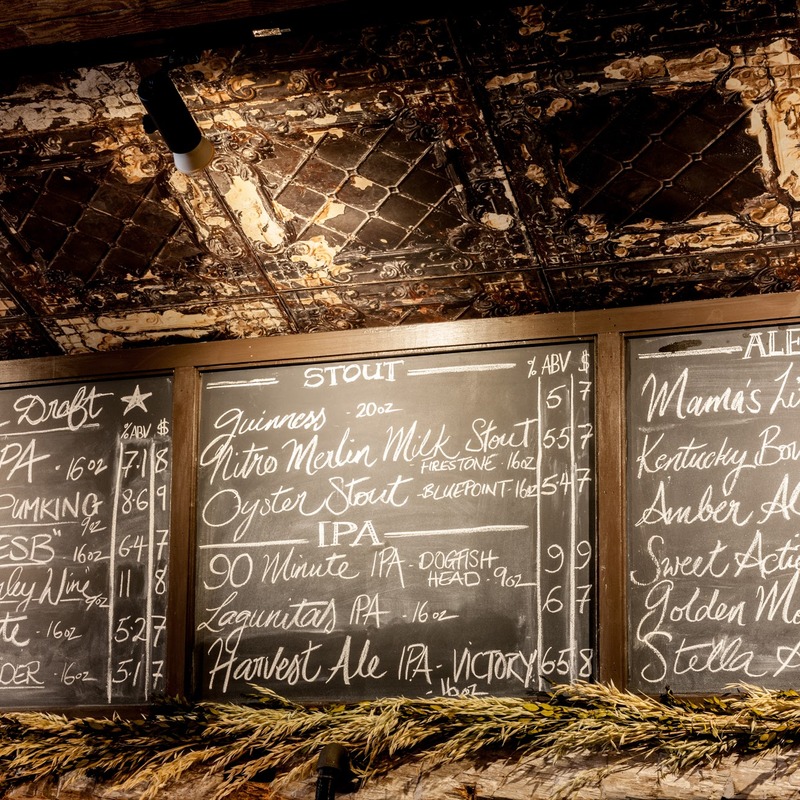 Draft ★
%ABV $
PA · 16oz 7.1 8
PUMKING 9oz 8.6 9
ESB" 16oz 6.4 7
rley Wine 9oz 11 8
te · 16oz 5.2 7
DER · 16oz 5.1 7
STOUT % ABV $
Guinness - 20oz 5 7
Nitro Merlin Milk Stout 5.5 7
FIRESTONE · 16oz
Oyster Stout - BLUEPOINT 16oz 5.4 7
IPA
90 Minute IPA - DOGFISH HEAD · 9oz 9 9
Lagunitas IPA · 16oz 6 7
Harvest Ale IPA - VICTORY! 6.5 8
- 16oz
ALE
Mama's Li
Kentucky Bou
Amber Al
Sweet Actio
Golden Mo
Stella A